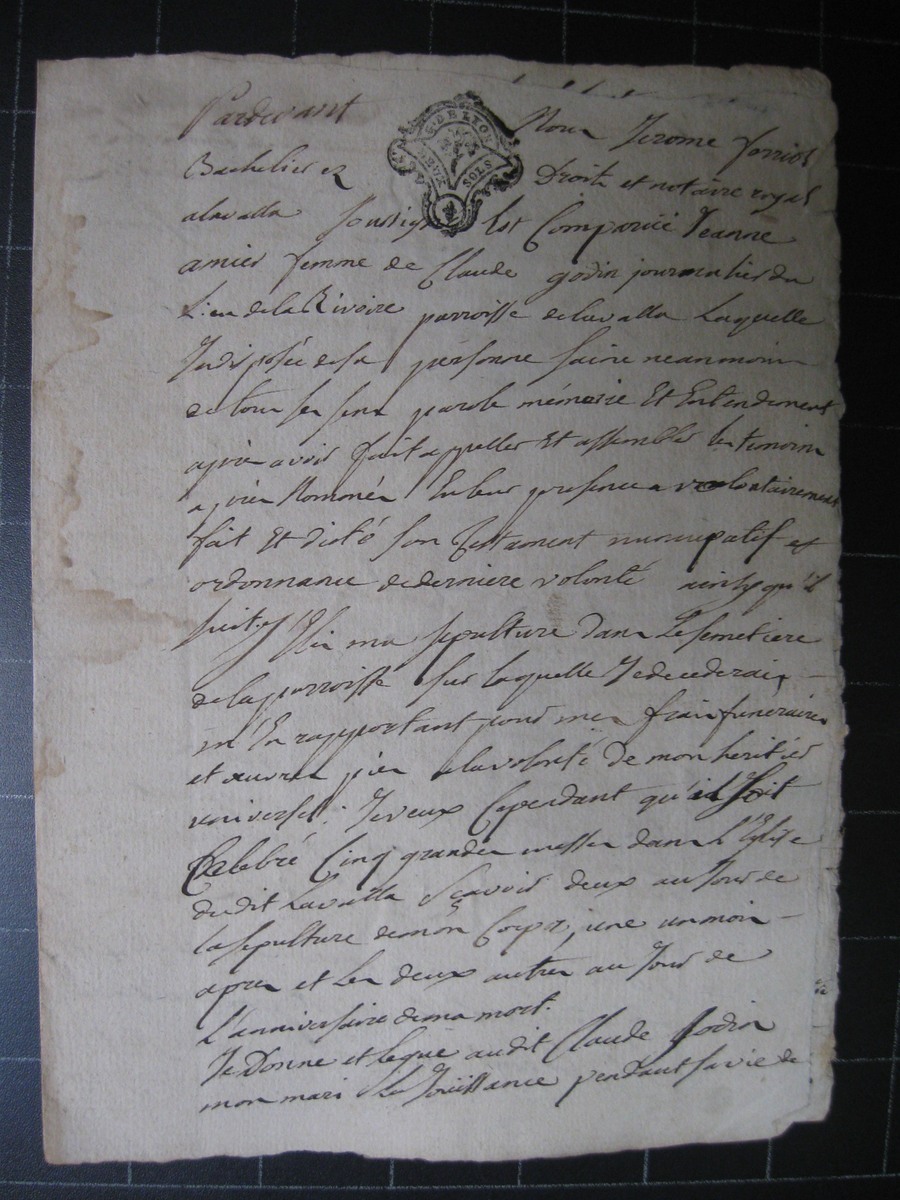 Pardevant Nous Jerome
G. DE LYON
DEUX SOLS
Bachelier ez Droits et notaire royal
alavalla soussigné Est Comparüe Jeanne
amier femme de Claude godin journalier du
Lieu dela Rivoire parroisse delavalla Laquelle
Indisposée desa personne saine neanmoins
de tous ses sens parole mémoire Et Entendement
apres avoir fait appeller Et assembler les temoins
apres Nommés En leur presence a volontairement
fait Et dicté son Testament nuncupatif et
ordonnance dederniere volonté ainsy qu'il
suit. J'Elis ma sepulture dans Le semetiere
delaparroisse sur laquelle Jedecederais
m'En rapportant pour mes frais funeraires
et œuvres pies alavolonté de mon heritier
universel. Jeveux Cependant qu'il soit
Celebré Cinq grandes messes dans L'Eglise
dudit Lavalla sçavoir deux au Jour de
la sepulture demon Corps, une un mois
apres et Les deux autres au Jour de
L'anniversaire dema mort.
Je Donne et legue audit Claude Godin
mon mari La Jouissance pendant sa vie de